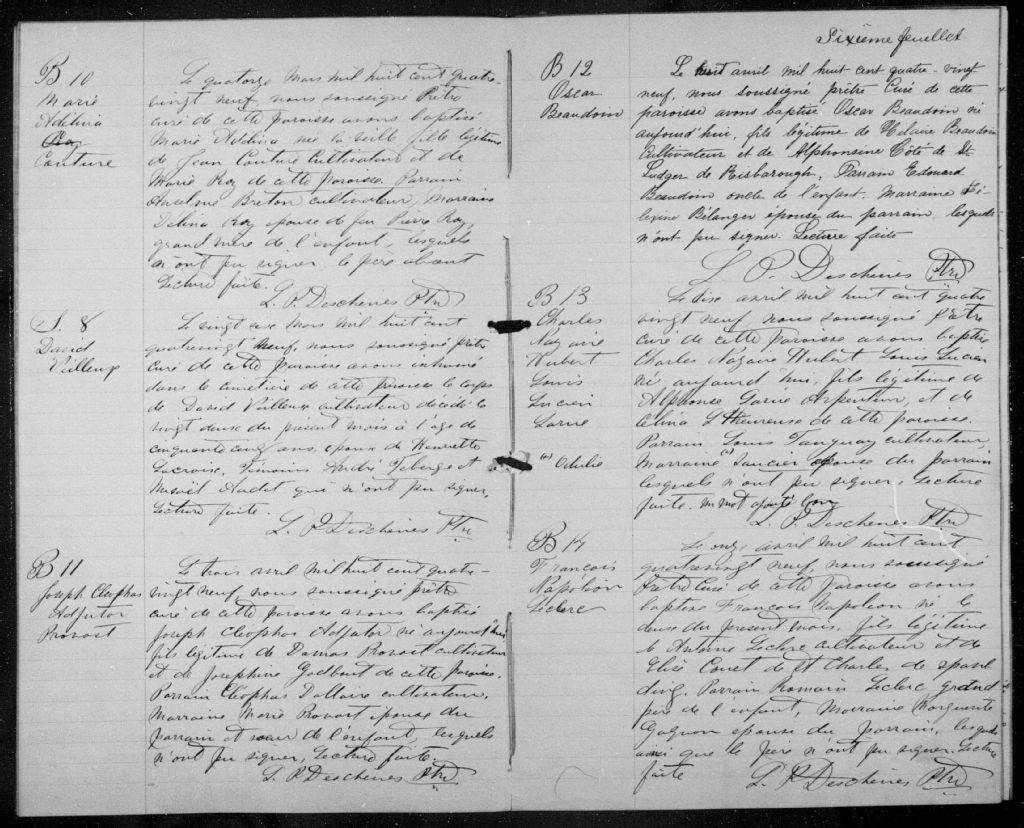 B 10
Marie
Adelina
Roy
Couture
Le quatorze Mars mil huit cent quatre-
vingt neuf, nous soussigné Prêtre
curé de cette paroisse avons baptisé
Marie Adelina née la veille fille légitime
de Jean Couture Cultivateur et de
Marie Roy de cette paroisse. Parrain
Anselme Breton cultivateur, Marraine
Delina Roy épouse de feu Pierre Roy,
grand mère de l'enfant, lesquels
n'ont pu signer. le père absent
Lecture faite.
L. P. Deschènes Ptre
S. 8
David
Veilleux
Le vingt Mars mil huit cent
quatrevingt neuf, nous soussigné prêtre
curé de cette Paroisse avons inhumé
dans le cimetière de cette paroisse le corps
de David Veilleux cultivateur décédé le
vingt deux du présent mois à l'age de
cinquante cinq ans, époux de Henriette
Lacroix. Témoins André Teberge et
Misaël Audet qui n'ont pu signer,
Lecture faite.
L. P. Deschènes Ptre
B 11
Joseph Cleophas
Adjutor
Provost
Le trois avril mil huit cent quatre-
vingt neuf, nous soussigné prêtre
curé de cette paroisse avons baptisé
Joseph Cleophas Adjutor né aujourd'hui
fils légitime de Damas Provost cultivateur
et de Josephine Godbout de cette paroisse.
Parrain Cleophas Vallaire cultivateur,
Marraine Marie Provost épouse du
parrain et sœur de l'enfant, lesquels
n'ont pu signer, Lecture faite.
L. P. Deschènes Ptre
Sixième feuillet
B 12
Oscar
Beaudoin
Le huit avril mil huit cent quatre-vingt
neuf, nous soussigné prêtre Curé de cette
paroisse avons baptisé Oscar Beaudoin né
aujourd'hui, fils légitime de Hilaire Beaudoin
Cultivateur et de Alphonsine Côté de St.
Ludger de Risborough, Parrain Edouard
Beaudoin oncle de l'enfant. Marraine Fé-
lexine Bélanger épouse du parrain, lesquels
n'ont pu signer. Lecture faite
L. P. Deschènes Ptre
B 13
Charles
Nazaire
Hubert
Louis
Lucien
Larue
(a) Odulie
Le dix avril mil huit cent quatre
vingt neuf, nous soussigné Prêtre
curé de cette Paroisse avons baptisé
Charles Nazaire Hubert Louis Lucien
né aujourd'hui, fils légitime de
Alphonse Larue Arpenteur, et de
Célina L'Heureux de cette paroisse.
Parrain Louis Tanguay cultivateur,
Marraine (a) Saucier épouse du parrain
lesquels n'ont pu signer, Lecture
faite. un mot ajouté bon
L. P. Deschènes Ptre
B 14
François
Napoléon
Leclerc
Le onze avril mil huit cent
quatrevingt neuf, nous soussigné
Prêtre Curé de cette Paroisse avons
baptisé François Napoleon né le
deux du présent mois, fils légitime
de Antoine Leclerc cultivateur et de
Elise Couet de St Charles de Spaul
ding. Parrain Romain Leclerc grand
père de l'enfant, Marraine Marguerite
Gagnon épouse du parrain, lesquels
ainsi que le père n'ont pu signer. Lecture
faite
L. P. Deschènes Ptre